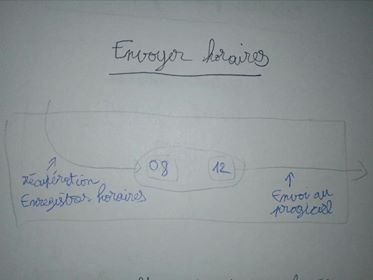 Envoyer horaires
08 12
Récupération
Enregistrer horaires
Envoi au
progiciel